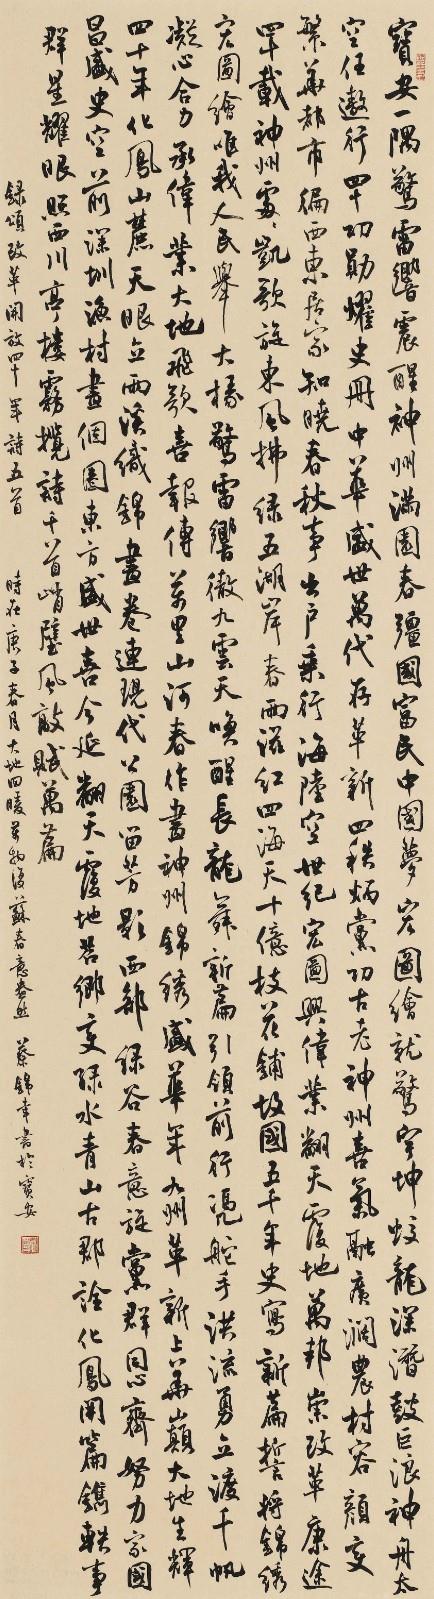 寶安一隅驚雷響震醒神州滿園春彊國富民中國夢宏圖繪就驚宇坤蛟龍深潛鼓巨浪神舟太
空任遨行四十功勛耀史冊中華盛世萬代存革新四秩炳黨功古老神州喜氣融廣濶農村容顏变
繁華都市徧西東居家知曉春秋事出户乘行海陸空世紀宏圖興偉業翻天覆地萬邦崇改革康途
四十載神州處處凱歌旋東風拂绿五湖岸春雨滋红四海天十億枝花鋪故國五千年史寫新篇誓将錦绣
宏圖繪唯我人民舉大椽驚雷響徹九雲天唤醒長龍舞新篇引領前行凴舵手洪流勇立渡千帆
凝心合力承偉業大地飛歌喜報傳萬里山河春作畫神州錦绣盛華年九州革新上華巔大地生輝
四十年化鳳山麓天眼立西溪織錦畫卷連現代公園留芳影西部绿谷春意旋黨群同心齊努力家國
昌盛史空前深圳漁村畫個圈東方盛世喜今延翻天覆地若鄉变绿水青山古郡詮化鳳開篇鐫軼事
群星耀眼照西川亭樓霧攬詩千首峭壁風敲賦萬篇
録頌改革開放四十年詩五首 時在庚子春月大地回暖萬物復蘇春意盎然 蔡錦幸書於寶安